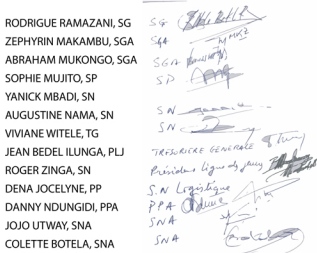 RODRIGUE RAMAZANI, SG
ZEPHYRIN MAKAMBU, SGA
ABRAHAM MUKONGO, SGA
SOPHIE MUJITO, SP
YANICK MBADI, SN
AUGUSTINE NAMA, SN
VIVIANE WITELE, TG
JEAN BEDEL ILUNGA, PLJ
ROGER ZINGA, SN
DENA JOCELYNE, PP
DANNY NDUNGIDI, PPA
JOJO UTWAY, SNA
COLETTE BOTELA, SNA
SG
SGA
SGA
SP
SN
SN
TRESORIERE GENERALE
Président ligue des jeunes
S.N Logistique
PPA
SNA
SNA